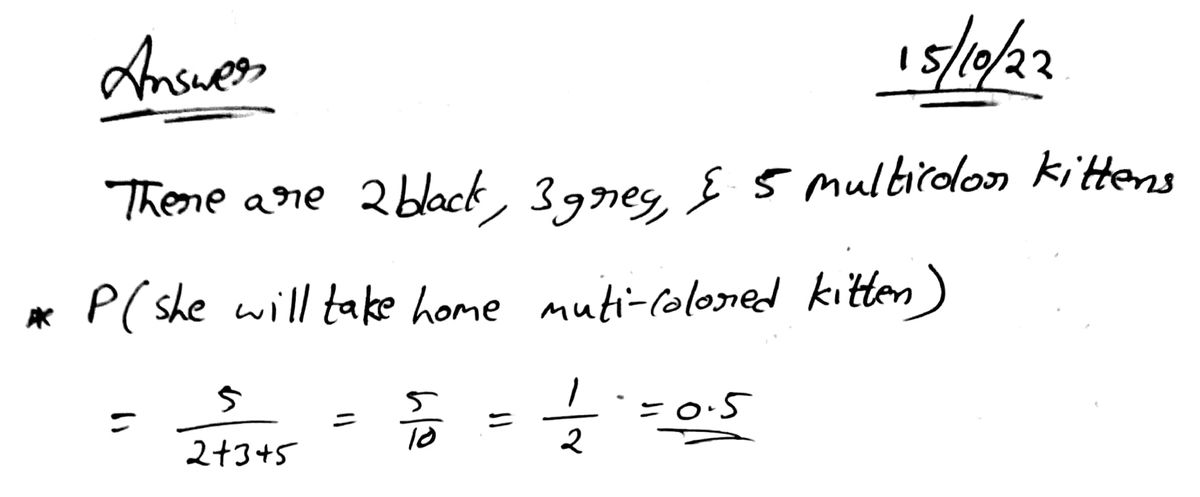 Answer 15/10/22
There are 2 black, 3 grey, & 5 multicolor kittens
* P( she will take home muti-colored kitten)
= 5/(2+3+5) = 5/10 = 1/2 = 0.5